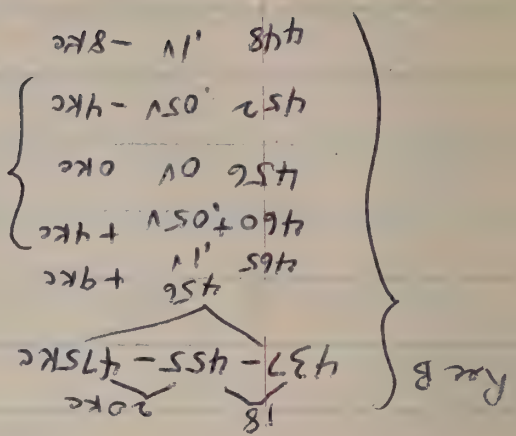 18 20KC
Rec B 437 - 455 - 475KC
456
465 .1v +9KC
460 +.05v +4KC
456 0v 0KC
452 .05v -4KC
448 .1v -8KC